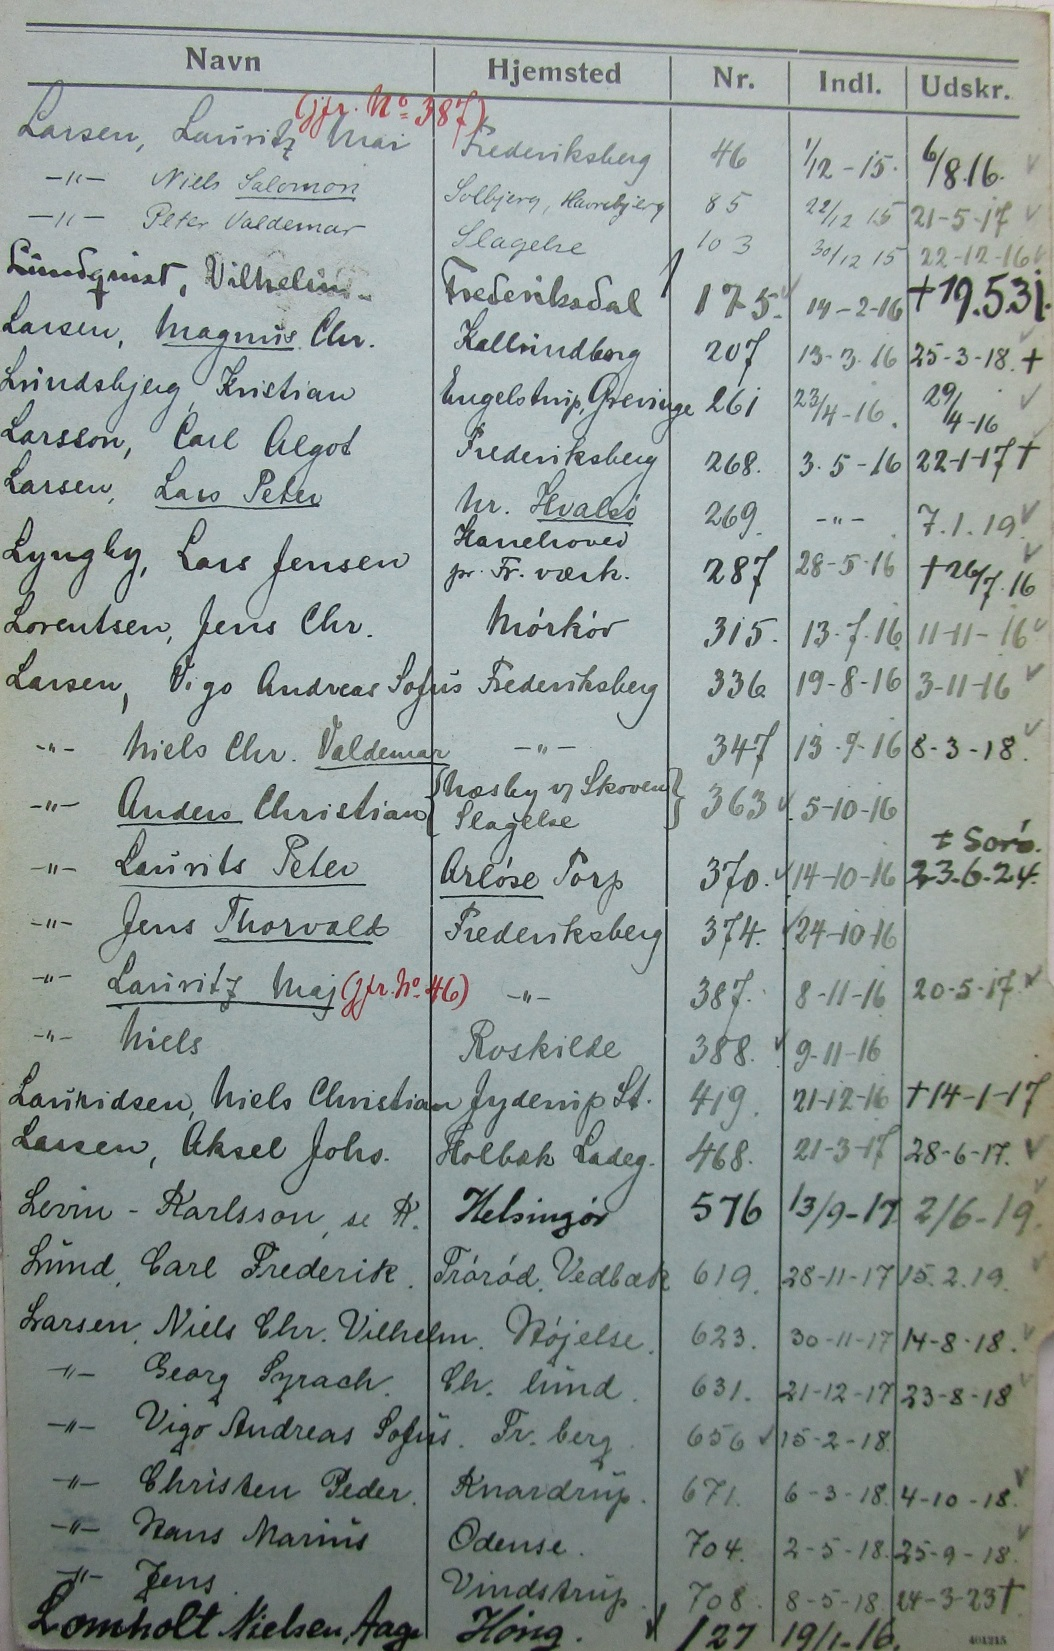 Navn Hjemsted Nr. Indl. Udskr.
(jfr. No 387)
Larsen, Lauritz Mai Frederiksberg 46 1/12 - 15. 6/8.16.
-"- Niels Salomon Solbjerg, Havrebjerg 85 22/12 15 21-5-17
-"- Peter Valdemar Slagelse 103 30/12 15 22-12-16
Lundquist, Vilhelm Frederiksdal 175. 14-2-16 +19.5.31.
Larsen, Magnus Chr. Kallundborg 207 13-3-16 25-3-18. +
Lundsbjerg, Kristian Engelstrup, Grevinge 261 23/4-16. 29/4-16
Larsson, Carl Algot Frederiksberg 268. 3.5-16 22-1-17 +
Larsen, Lars Peter Nr. Hvalsö 269. -"- 7.1.19
Lyngby, Lars Jensen Hanehoved pr. Fr. værk. 287 28-5-16 +26/7.16
Lorentsen, Jens Chr. Mörköv 315. 13-7-16 11-11-16
Larsen, Vigo Andreas Sofus Frederiksberg 336 19-8-16 3-11-16
-"- Niels Chr. Valdemar -"- 347 13-9-16 8-3-18.
-"- Anders Christian {Næsby v/ Skoven Slagelse} 363 5-10-16
+ Sorö.
-"- Laurits Peter Arlöse Torp 370. 14-10-16 23.6.24.
-"- Jens Thorvald Frederiksberg 374. 24-10-16
-"- Lauritz Maj (jfr. No. 46) -"- 387. 8-11-16 20-5-17
-"- Niels Roskilde 388. 9-11-16
Lauridsen, Niels Christian Jyderup St. 419. 21-12-16 +14-1-17
Lassen, Aksel Johs. Holbæk Ladeg. 468. 21-3-17 28-6-17.
Levin - Karlsson, se K. Helsingör 576 13/9-17 2/6-19.
Lund, Carl Frederik. Tröröd, Vedbæk 619. 28-11-17 15.2.19.
Larsen, Niels Chr. Vilhelm. Höjelse. 623. 30-11-17 14-8-18.
-"- Georg Syrach. Ch. lund. 631. 21-12-17 23-8-18
-"- Vigo Andreas Sofus. Fr. berg. 656 15-2-18.
-"- Christen Peder. Knardrup. 671. 6-3-18. 4-10-18.
-"- Hans Marius Odense. 704. 2-5-18. 25-9-18.
-"- Jens. Vindstrup. 708. 8-5-18. 24-3-23 +
Lomholt Nielsen, Aage Höng. 127 19/1-16.
401215